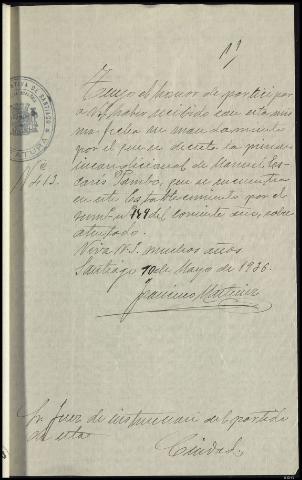 Tengo el honor de participar
a V.S. haber recibido con esta mis
ma fecha un mandamiento
por el que se decreta la prisión
incondicional de Manuel
Pambo, que se encuentra
en este Establecimiento por el
del corriente año, sobre
atentado.
Viva V.S. muchos años
Santiago 10 de Mayo de 1936.
Francisco Martinez
Nº 413.
Sr. Juez de instrucción del partido
de esta
Ciudad.